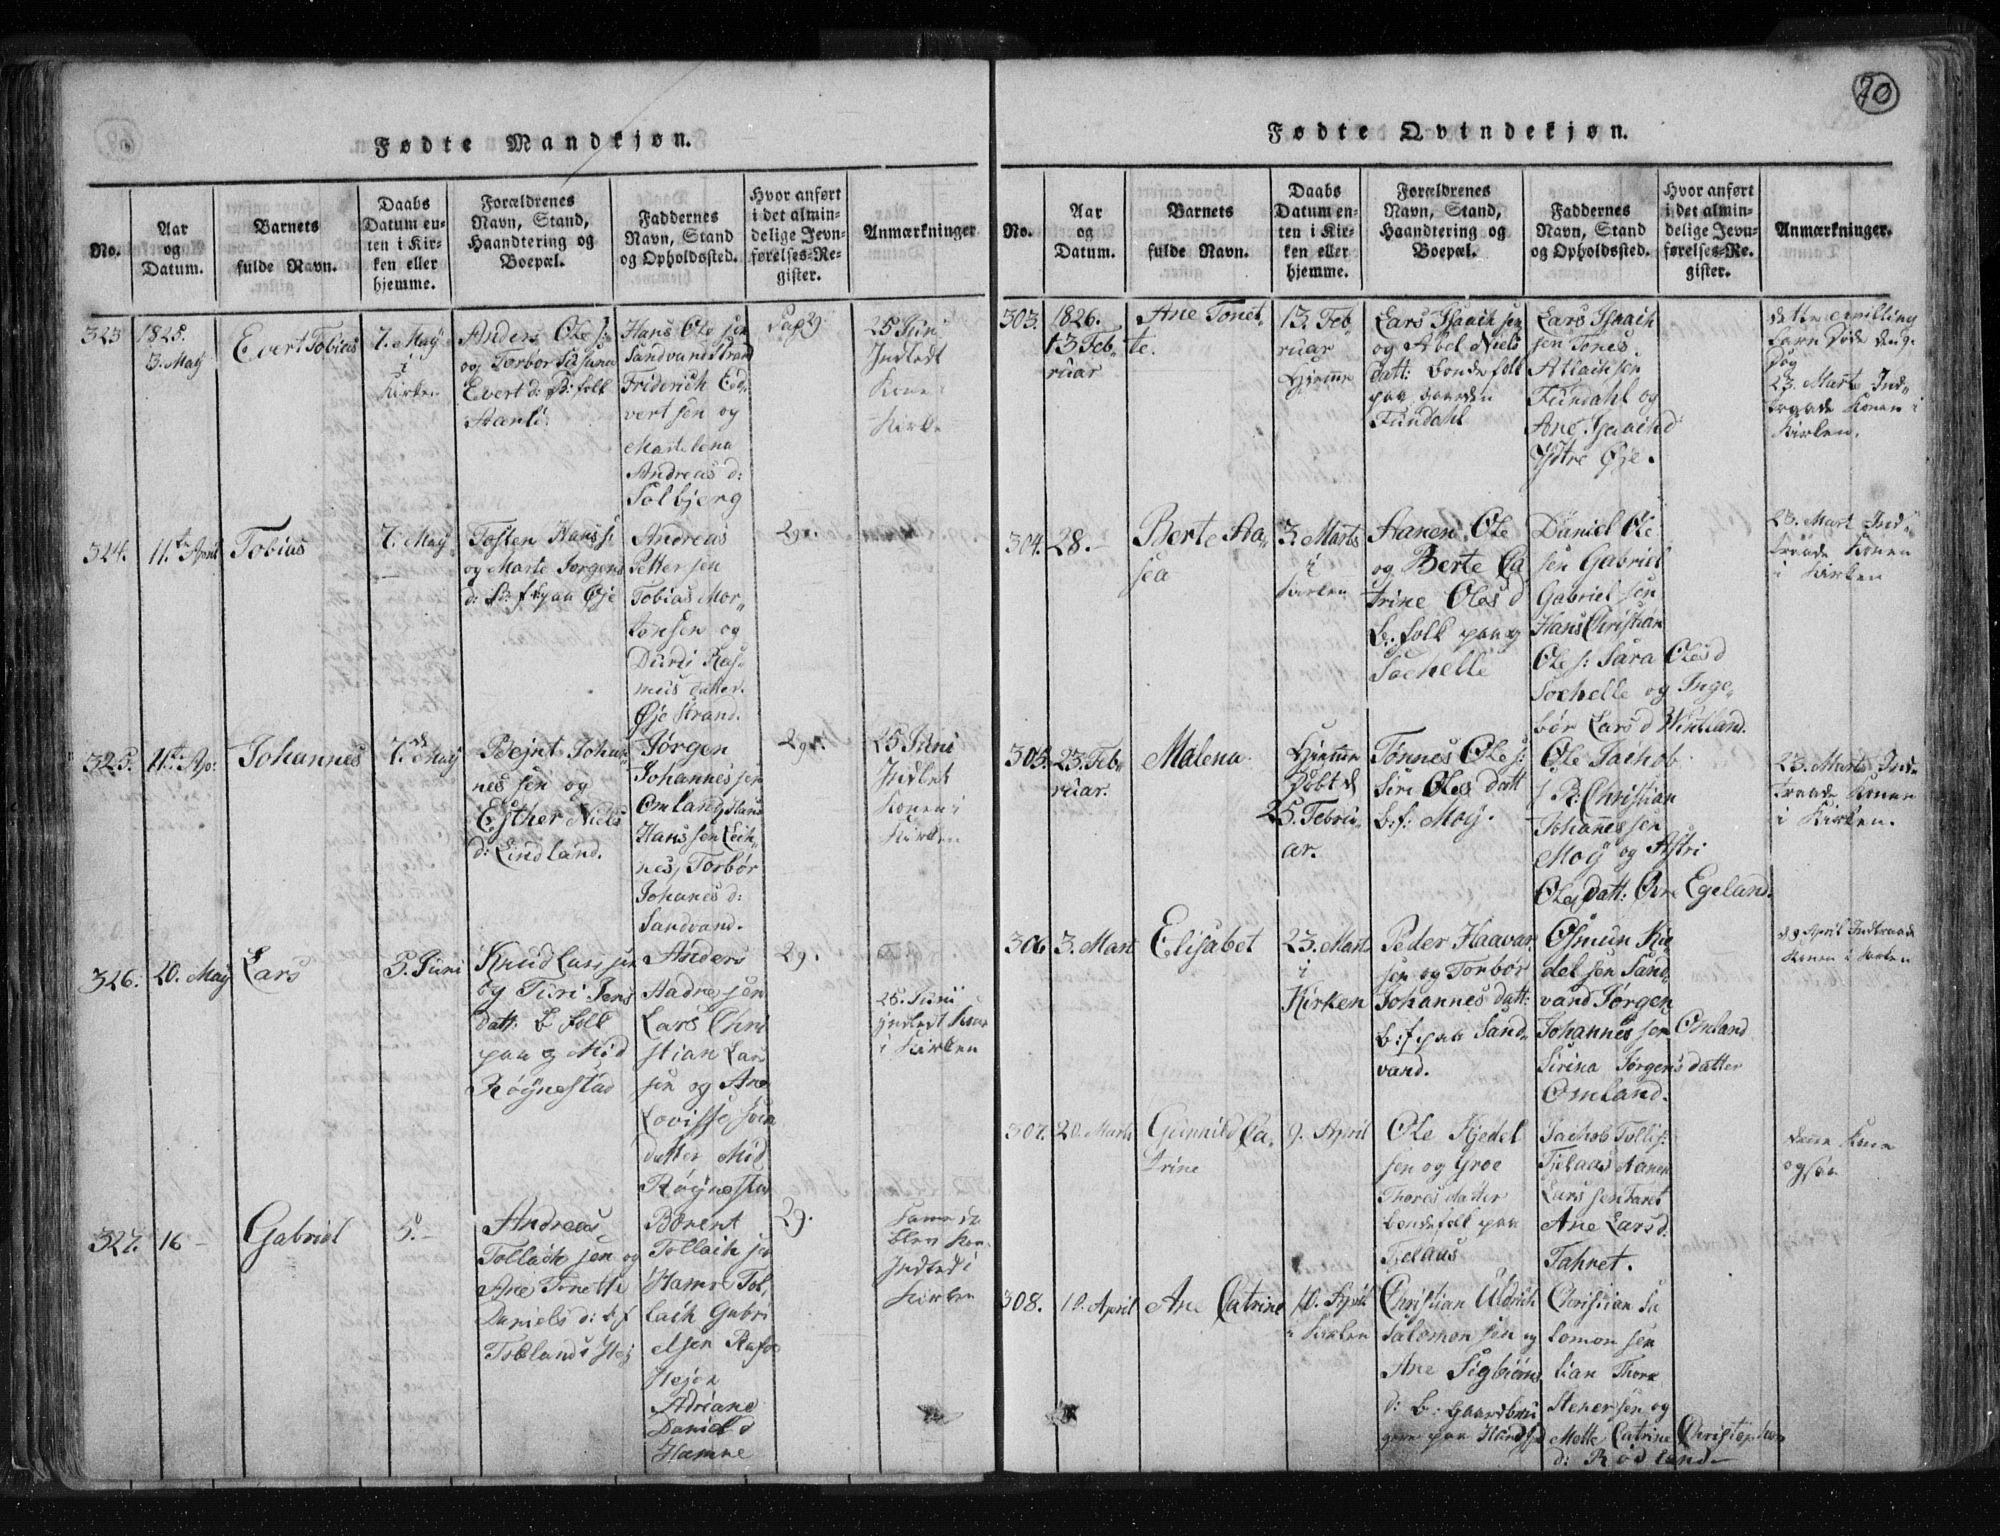 70
Fødte Mandkjøn.
No.
Aar
og
Datum.
Barnets
fulde Navn.
Daabs
Datum en-
ten i Kir-
ken eller
hjemme.
Forældrenes
Navn, Stand,
Haandtering og
Boepæl.
Faddernes
Navn, Stand
og Opholdssted.
Hvor anført
i det almin-
delige Jevn-
førelses-Re-
gister.
Anmærkninger
323
1825.
3. Maÿ
Evert Tobias
7. Maÿ
i
Kirken
Anders Ole s:
og Torbor
Evert d: B: folk
Hans Ole sen
Sandvandstrand
Friderich Ed-
vert sen og
Andreas d:
Solbjerg
25 Juni
Indledt
Konen i
Kirke
324.
11te April
Tobias
7. Maÿ
Tosten Hans s:
og Marte Jørgens
d: B: f paa Øje
Andreas
Petter sen
Tobias Mor-
tensen og
Durdi Ras-
mus datter.
Øje Strand.
325.
11te Ap:
Johannes
7de Maÿ
Bejnt Johan-
nes sen og
Esther Niels
d: Lindland.
Jørgen
Johannes sen
Omland Hans
Hans sen
nes, Torbør
Johanes d:
Sandvand.
25 Juni
Indlet
Konen i
Kirken
326.
20. Maÿ
Lars
5. Juni
Knud Lars sen
og Turi Jens
datt: B folk
paa g Mid
Røÿnestad
Anders
Aadne sen
Lars Chri
stian Lar
sen og Ane
Lovisse
datter Mid
Røÿnestad
29.
25. Juni
Indledt Kone
i Kirken
327.
16 —
Gabriel
5. —
Andreas
Tollack sen og
Ane Tonette
Daniels d: B f
Berent
Tollach sen
Hamre Tol,
lach Gabri
elsen
Adriane
Daniel d
Hamne
29.
Samme da
blev Kon
Indledt i
Kirken
Fødte Qvindekjøn.
No.
Aar
og
Datum.
Barnets
fulde Navn.
Daabs
Datum en-
ten i Kir-
ken eller
hjemme.
Forældrenes
Navn, Stand,
Haandtering og
Boepæl.
Faddernes
Navn, Stand
og Opholdssted.
Hvor anført
i det almin-
delige Jevn-
førelses-Re-
gister.
Anmærkninger.
303.
1826.
13 Feb-
ruar
Ane Tonet-
te.
13. Feb,
ruar
Hjemme
Lars Isaach sen
og Abel Niels
datt: bonde folk
paa Gaarden
Fundahl
Lars Isaach
sen Tønes
Atlach sen
Fundahl og
Ane Isaach d
Ÿdtre Øje.
dette tvilling
barn Døde den 9.
Dag
23. Marte Ind-
traade Konen i
Kirken.
304.
28. —
Berte Aa,
sea
3. Marts
i
Kirken
Aanen Ole
og Berte Ca
trine Oles d
B: folk paa g
Sochelle
Daniel Ole
sen Gabriel
Gabriel sen
Hans Christian
Ole s: Sara Oles d
Sochelle og Inge-
bør Lars d Vintland.
23. Mart Ind-
traade Konen
i Kirken
305.
23. Feb-
ruar.
Malena
Hjemme
Døbt d
25. Febru-
ar.
Tønnes Ole s:
Siri Oles datt
b: f: Moÿ.
Ole Jachob
s R: Christian
Johannes sen
Moÿ og Astri
Oles datt: Øvre Egeland.
23. Marts Ind-
traade Konen
i Kirken.
306
3. Mart
Elisabet
23. Marts
i
Kirken
Peder Haavar
sen og Torbør
Johannes datt:
b: f paa Sand-
vand.
Osmun Kie
del sen Sand
vand Jørgen
Johannes sen Omland
Sirina Jørgens datter
Omland.
29 April Indtraade
Konen i Kirken
307.
20. Marts
Gunnild Ca,
trine
9. April
Ole Kjedel
sen og Groe
Thores datter
bondefolk paa
Fjelaas
Jachob Tollis:
Fjelaas Aanen
Lars sen
Ane Lars d:
denne Kone
ogsaa
308.
10. April
Ane Catrine
10. April
i Kirken
Christian Uldrich
Salomon sen og
Ane Sigbiørns
d: b: Gaardbru
gere paa
Christian Sa
lomon sen
Lian Thore
Stener sen og
Mette Catrine Christophers
d: Rødland